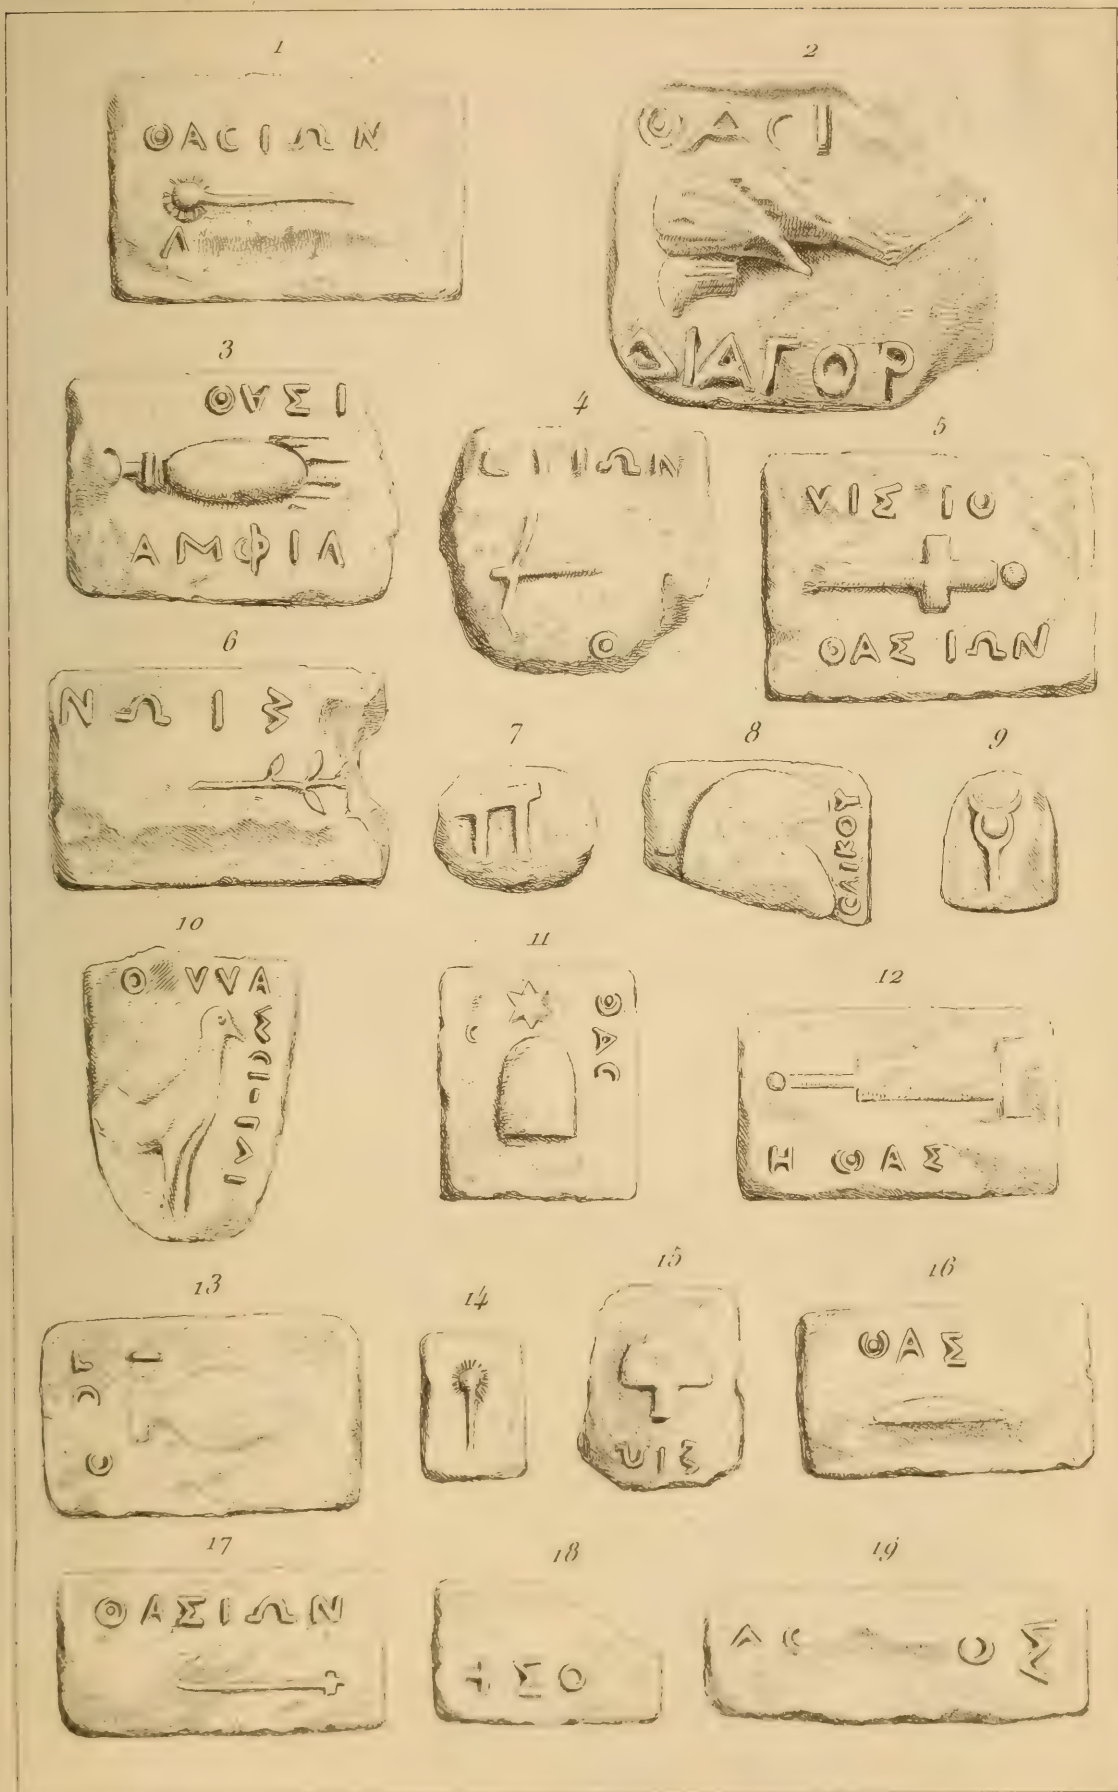 1
ΘΑCΙΩΝ
Λ
2
ΘΑCΙ
ΔΙΑΓΟΡ
3
ΘΑΣΙ
ΑΜΦΙΛ
4
ΙΩΝ
Θ
5
ΝΙΣ ΙΟ
ΘΑΣΙΩΝ
6
ΝΩΙΣ
7
8
CΑΙΚΟΥ
9
10
11
ΘΑC
12
Η ΘΑΣ
13
14
15
ΥΙΣ
16
ΘΑΣ
17
ΘΑΣΙΩΝ
18
ΣΟ
19
ΑC Ο Σ